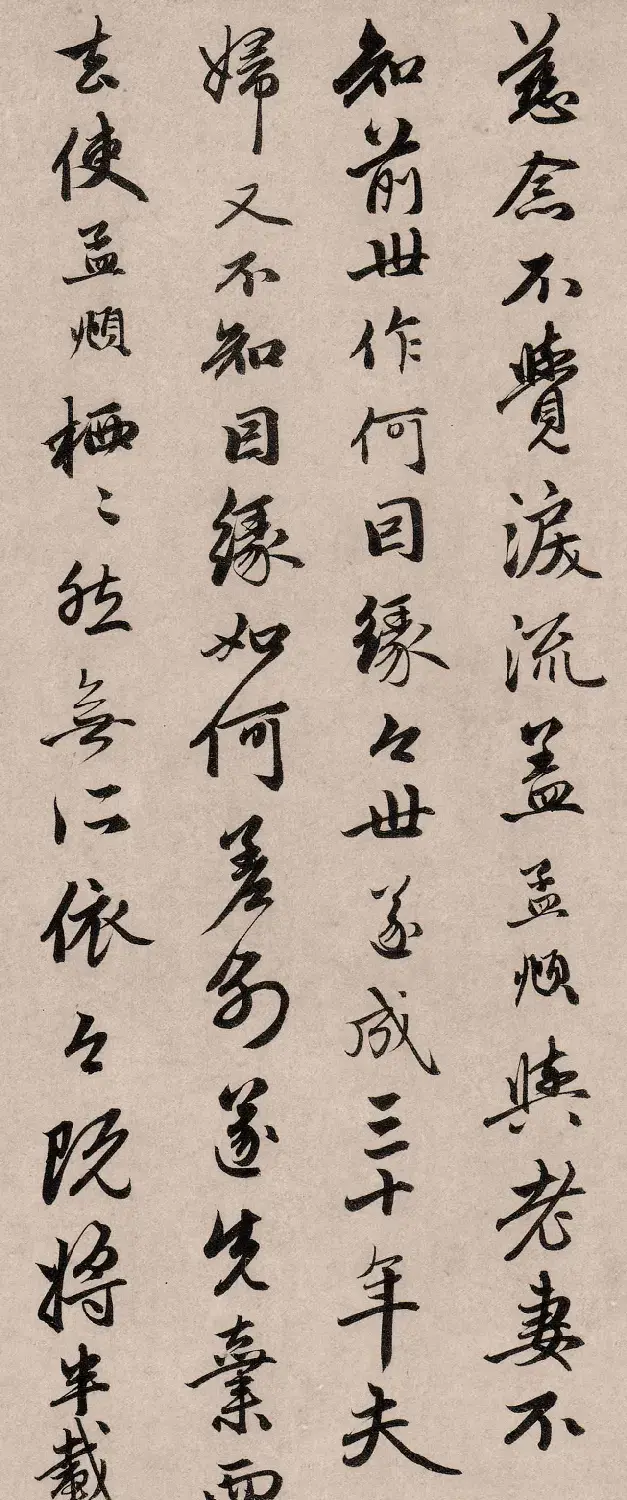 慈念不覺淚流盖孟頫與老妻不
知前世作何因緣今世遂成三十年夫
婦又不知因緣如何差別遂先棄而
去使孟頫栖栖然無所依今既將半載